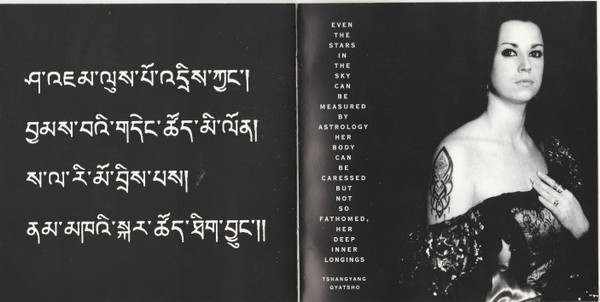 ཤ་འཇམ་ལུས་པོ་འདྲིས་ཀྱང༌།
བྱམས་བའི་གདེང་ཚོད་མི་ལོན།
ས་ལ་རི་མོ་བྲིས་པས།
ནམ་མཁའི་སྐར་ཚོད་ཐིག་བྱུང༌།།
EVEN
THE
STARS
IN
THE
SKY
CAN
BE
MEASURED
BY
ASTROLOGY
HER
BODY
CAN
BE
CARESSED
BUT
NOT
SO
FATHOMED,
HER
DEEP
INNER
LONGINGS
TSHANGYANG
GYATSHO